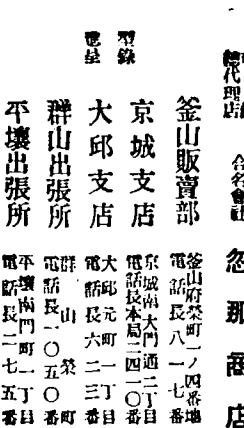 總代理店 合名會社 忽那商店
釜山販賣部
釜山府榮町一ノ四番地
電話長八一七番
型錄
京城支店
京城南大門通二丁目
電話長本局二四一〇番
進呈
大邱支店
大邱元町一丁目
電話長六二三番
群山出張所
群山榮町
電話長一〇五〇番
平壤出張所
平壤南門町一丁目
電話長二七五番